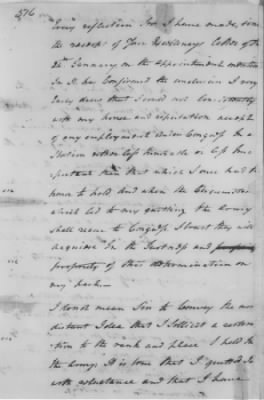 576
Every reflection Sir I have made, since
the receipt of Your Excellency's Letter of the
24th January on the appointment
In it has confirmed the conclusion I very
Early drew that I could not consistently
with my honor and reputation accept
of any employment under Congress In a
Station either less honorable or less Im
portant than that which I once had the
honor to hold And when the Circumstances
which led to my quitting the Army
shall recur to Congress I trust they will
acquiesce In the Justness and
propriety of this determination on
my part.
I do not mean Sir to Convey the most
distant Idea that I sollicit a restora
tion to the rank and place I held In
the Army; It is true that I quitted It
with reluctance and that I have